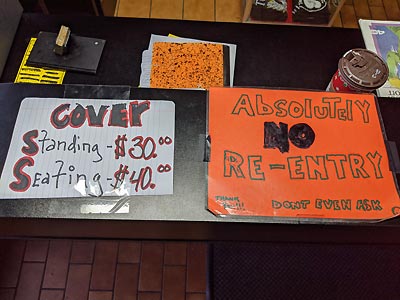 COVER
Standing - $30.00
Seating - $40.00
ABSOLUTELY
NO
RE-ENTRY
DONT EVEN ASK